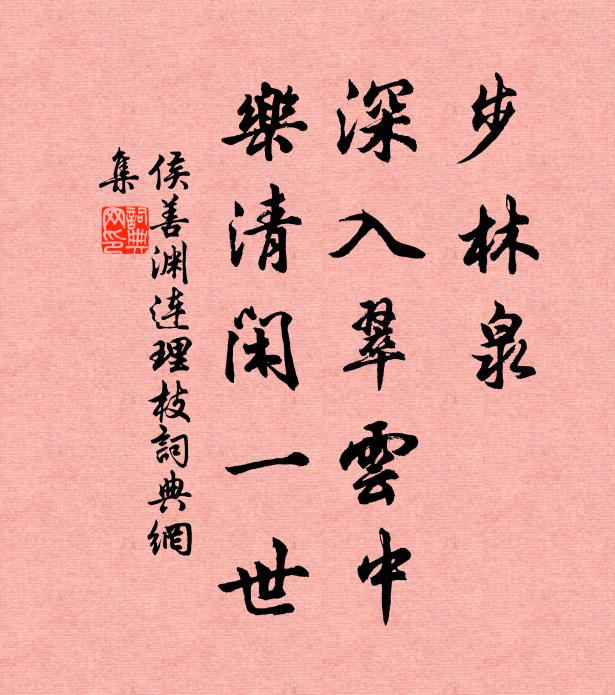 步林泉
深入翠雲中
樂清閑一世
侯善渊連理枝詞典網
集
詞典
网印